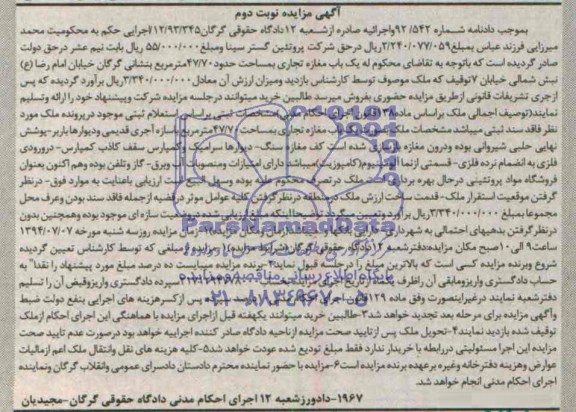 آگهی مزایده نوبت دوم
بموجب دادنامه شماره ۹۲/۵۴۲ واجرائیه صادره ازشعبه ۱۲دادگاه حقوقی گرگان۱۲/۹۳/۳۴۵اجرایی حکم به محکومیت محمد
میرزایی فرزند عباس بمبلغ۲/۲۴۰/۰۷۷/۰۵۹ریال درحق شرکت پروتئین گستر سینا ومبلغ۵۵/۰۰۰/۰۰۰ ریال بابت نیم عشر درحق دولت
صادر گردیده است که باتوجه به تقاضای محکوم له یک باب مغازه تجاری بمساحت حدود۴۷/۷۰مترمربع بنشانی گرگان خیابان امام رضا (ع)
نبش شمالی خیابان ۷توقیف که ملک موصوف توسط کارشناس بازدید ومیزان ارزش آن معادل۳/۳۴۰/۰۰۰/۰۰۰ریال برآورد گردیده که پس
ازجری تشریفات قانونی ازطریق مزایده حضوری بفروش میرسد طالبین خرید میتوانند درجلسه مزایده شرکت وپیشنهاد خود را ارائه وتسلیم
نمایند(توصیف اجمالی ملک براساس ماده مشخصات ثبتی براساس استعلام ثبتی موجود درپرونده ملک مورد
نظر فاقد سند ثبتی میباشد مشخصات ملک باب مغازه تجاری بمساحت ۴۷/۷۰مترمربع باسازه آجری قدیمی ودیوارها باربر-پوشش
نهایی حلبی شیروانی بوده ودرون مغازه بازسازی شده است کف مغازه سنگ- دیوارها سرامیک وکمپارس سقف کاذب کمپارس- درورودی
فلزی به انضمام نرده فلزی- قسمتی ازنما آلومینیوم(کامپوزیت)میباشد دارای امتیازات ومنصوبات آب وبرق- گاز وتلفن بوده وهم اکنون بعنوان
فروشگاه مواد پروتئینی درحال بهره برداری است ملک درتصرف محکوم علیه بوده وسهل البیع است ارزیابی باعنایت به موارد فوق- درنظر
گرفتن موقعیت استقرار ملک- قدمت ساخت ارزش ملک درمنطقه درنظر گرفتن کلیه عوامل موثر درقضیه ازجمله فاقد سند بودن وعرف محل
مجموعا بمبلغ ۳/۳۴۰/۰۰۰/۰۰۰ریال برآورد وتعیین میگردد توضیحا اینکه مبلغ ارزیابی شده وضعیت سازه ای موجود بوده وهمچنین بدون
درنظر گرفتن بدهیهای احتمالی به شهرداری مزایده روزسه شنبه مورخه ۱۳۹۴/۰۷/۰۷
ساعت۹ الی۱۰صبح مکان مزایده:دفترشعبه ۱۲دادگاه حقوقی گرگان (شرایط مزایده)۱-مزایده ازمبلغی که توسط کارشناس تعیین گردیده
شروع وبرنده مزایده کسی است که بالاترین مبلغ را قبول نماید۲-برنده مزایده میبایست ده درصد مبلغ مورد پیشنهاد را نقدا" به
حساب دادگستری واریزومابقی آن راظرف سپرده دادگستری واریزوقبض آن را تسلیم
دفترشعبه نمایند درغیراینصورت وفق ماده ۱۲۹قانون پس ازکسرهزینه های اجرایی بنفع دولت ضبط
وآگهی مزایده برای مرحله بعد تجدید خواهد شد۳-طالبین خرید میتوانند یکهفته قبل ازاجرای مزایده با هماهنگی این اجرای احکام ازملک
توقیف شده بازدید نمایند۴-تحویل ملک پس ازتایید صحت مزایده ازناحیه دادگاه صادر کننده اجراییه خواهد بود درصورت عدم تایید صحت
مزایده این اجرا مسئولیتی دررابطه با خریدار ندارد فقط مبلغ تودیع شده عودت خواهد شد۵-کلیه هزینه های نقل وانتقال ملک اعم ازمالیات
عوارض وهزینه دفترخانه وغیره برعهده برنده مزایده است۶-مزایده با حضور نماینده محترم دادستان دادسرای عمومی وانقلاب گرگان ونماینده
اجرای احکام مدنی انجام خواهد شد.
۱۹۶۷-دادورزشعبه ۱۲ اجرای احکام مدنی دادگاه حقوقی گرگان-مجیدیان
ParsNamadData
پایگاه اطلاع رسانی مناقصه و مزایده
۰۲۱-۸۸۳۴۹۶۷۰-۵